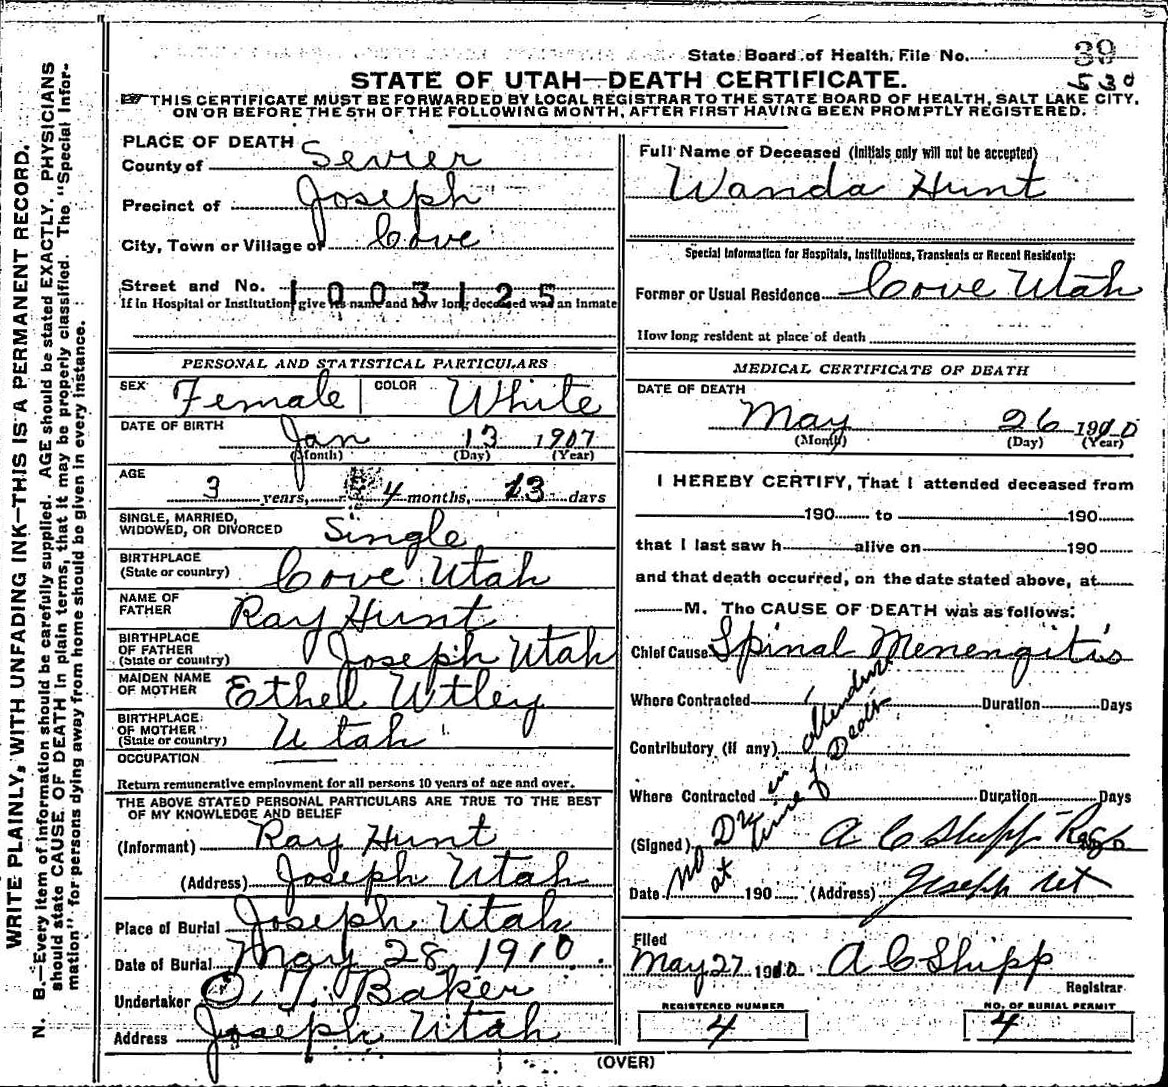 State Board of Health, File No. 39
530
STATE OF UTAH—DEATH CERTIFICATE.
THIS CERTIFICATE MUST BE FORWARDED BY LOCAL REGISTRAR TO THE STATE BOARD OF HEALTH, SALT LAKE CITY,
ON OR BEFORE THE 5TH OF THE FOLLOWING MONTH, AFTER FIRST HAVING BEEN PROMPTLY REGISTERED.
WRITE PLAINLY, WITH UNFADING INK—THIS IS A PERMANENT RECORD.
N. B.—Every item of information should be carefully supplied. AGE should be stated EXACTLY. PHYSICIANS
should state CAUSE OF DEATH in plain terms, that it may be properly classified. The "Special Infor-
mation" for persons dying away from home should be given in every instance.
PLACE OF DEATH
County of Sevier
Precinct of Joseph
City, Town or Village of Cove
Street and No. 1003125
If in Hospital or Institution give its name and how long deceased was an inmate
PERSONAL AND STATISTICAL PARTICULARS
SEX Female COLOR White
DATE OF BIRTH Jan 13 1907
(Month) (Day) (Year)
AGE 3 years, 4 months, 13 days
SINGLE, MARRIED,
WIDOWED, OR DIVORCED Single
BIRTHPLACE
(State or country) Cove Utah
NAME OF
FATHER Ray Hunt
BIRTHPLACE
OF FATHER
(State or country) Joseph Utah
MAIDEN NAME
OF MOTHER Ethel Utley
BIRTHPLACE
OF MOTHER
(State or country) Utah
OCCUPATION
Return remunerative employment for all persons 10 years of age and over.
THE ABOVE STATED PERSONAL PARTICULARS ARE TRUE TO THE BEST
OF MY KNOWLEDGE AND BELIEF
(Informant) Ray Hunt
(Address) Joseph Utah
Place of Burial Joseph Utah
Date of Burial May 28 1910.
Undertaker O. T. Baker
Address Joseph Utah
Full Name of Deceased (Initials only will not be accepted)
Wanda Hunt
Special Information for Hospitals, Institutions, Transients or Recent Residents:
Former or Usual Residence Cove Utah
How long resident at place of death
MEDICAL CERTIFICATE OF DEATH
DATE OF DEATH
May 26 1910
(Month) (Day) (Year)
I HEREBY CERTIFY, That I attended deceased from
190 to 190
that I last saw h alive on 190
and that death occurred, on the date stated above, at
M. The CAUSE OF DEATH was as follows:
Chief Cause Spinal Menengitis
Where Contracted Duration Days
Contributory (if any)
Where Contracted Duration Days
No Dr in attendance
at time of Death
(Signed) A C Shipp
Date 190 (Address) Joseph Ut
Filed
May 27 1910 A C Shipp
Registrar
REGISTERED NUMBER
4
NO. OF BURIAL PERMIT
4
(OVER)